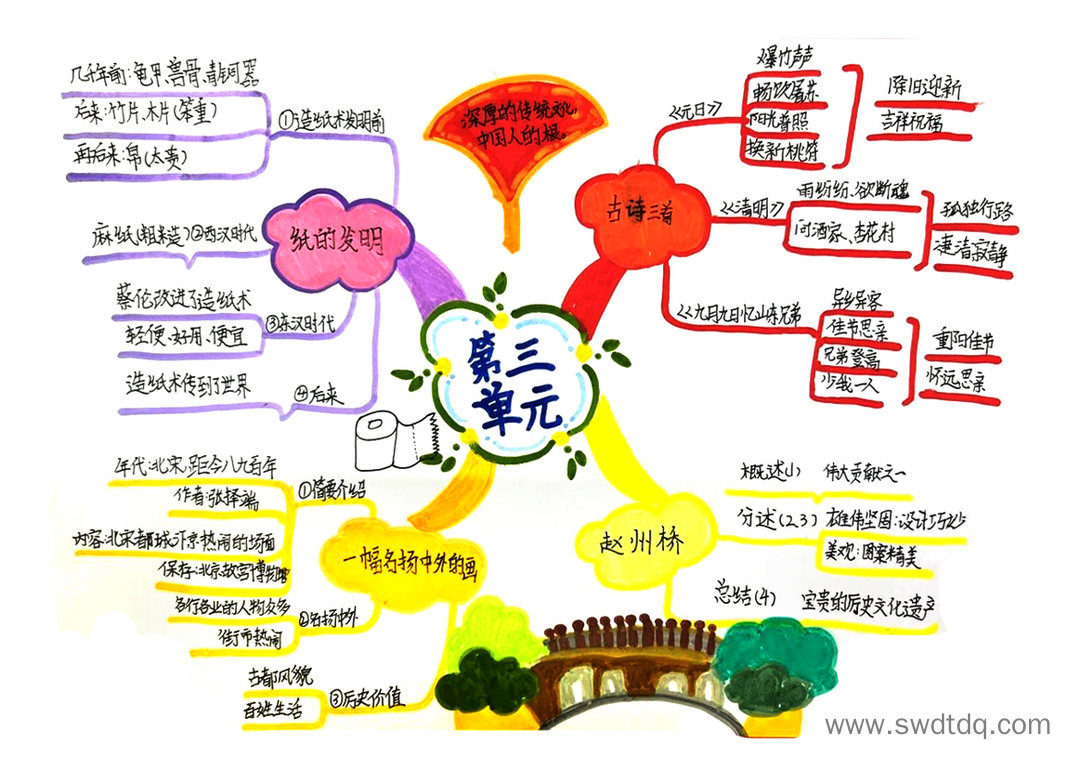 深厚的传统文化,
中国人的根。
第三
单元
纸的发明
①造纸术发明前
几千年前:龟甲、兽骨、青铜器
后来:竹片、木片(笨重)
再后来:帛(太贵)
②西汉时代
麻纸(粗糙)
③东汉时代
蔡伦改进了造纸术
轻便、好用、便宜
④后来
造纸术传到了世界
古诗三首
《元日》
爆竹声声
畅饮屠苏
阳光普照
换新桃符
除旧迎新
吉祥祝福
《清明》
雨纷纷、欲断魂
问酒家、杏花村
孤独行路
凄清寂静
《九月九日忆山东兄弟》
异乡异客
佳节思亲
兄弟登高
少我一人
重阳佳节
怀远思亲
一幅名扬中外的画
①简要介绍
年代:北宋,距今八九百年
作者:张择端
内容:北宋都城汴京热闹的场面
保存:北京故宫博物院
②名扬中外
各行各业的人物众多
街市热闹
③历史价值
古都风貌
百姓生活
赵州桥
概述(1) 伟大贡献之一
分述(2、3) 雄伟坚固:设计巧妙
美观:图案精美
总结(4) 宝贵的历史文化遗产
www.swdtdq.com